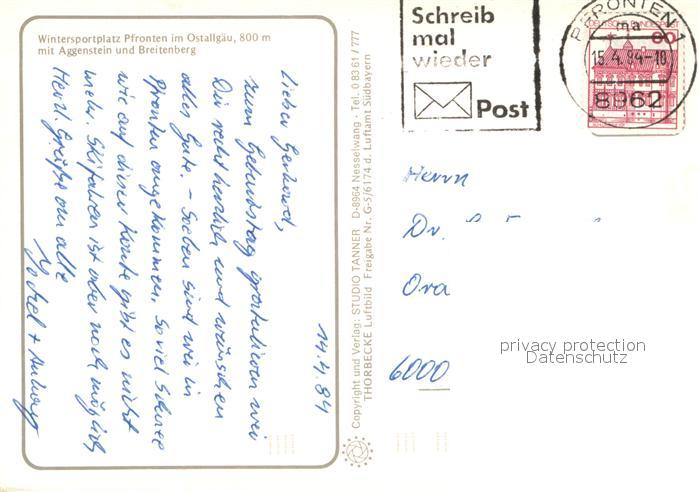 Wintersportplatz Pfronten im Ostallgäu, 800 m
mit Aggenstein und Breitenberg
14.4.84
Lieber Gerhard,
zum Geburtstag gratulieren wir
Dir recht herzlich und wünschen
alles Gute. – Soeben sind wir in
Pfronten angekommen. So viel Schnee
wie auf dieser Karte gibt es nicht
mehr. Skifahren ist aber noch möglich
Herzl. Grüße an alle
Copyright und Verlag: STUDIO TANNER D-8964 Nesselwang · Tel. 0 83 61 / 777
THORBECKE Luftbild Freigabe Nr. G-5/6174 d. Luftamt Südbayern
Schreib
mal
wieder
Post
PFRONTEN 1
ma
15.4.84-10
8962
DEUTSCHE BUNDESPOST
60
Herrn
Dr.
6000
privacy protection
Datenschutz